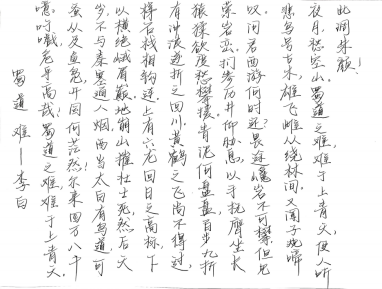 蜀道难——李白
噫吁嚱,危乎高哉!蜀道之难,难于上青天。
蚕丛及鱼凫,开国何茫然!尔来四万八千
岁,不与秦塞通人烟。西当太白有鸟道,可
以横绝峨眉巅。地崩山摧壮士死,然后天
梯石栈相钩连。上有六龙回日之高标,下
有冲波逆折之回川。黄鹤之飞尚不得过,
猿猱欲度愁攀援。青泥何盘盘,百步九折
萦岩峦。扪参历井仰胁息,以手抚膺坐长
叹。问君西游何时还?畏途巉岩不可攀。但见
悲鸟号古木,雄飞雌从绕林间。又闻子规啼
夜月,愁空山。蜀道之难,难于上青天,使人听
此凋朱颜!